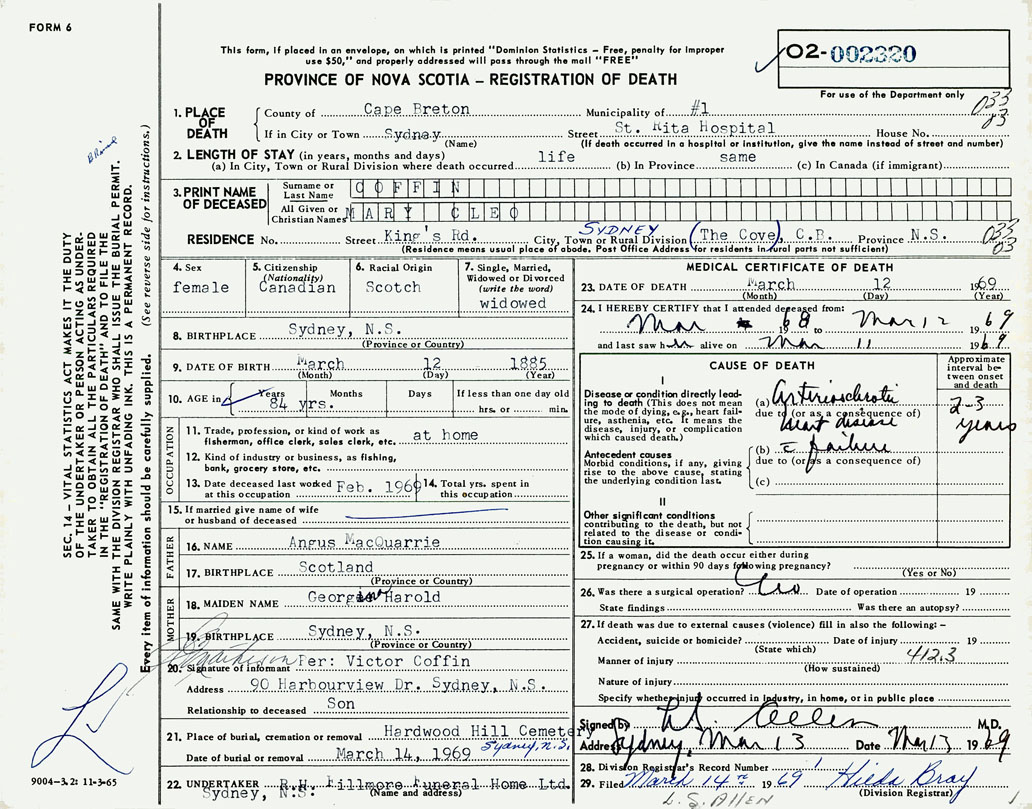 FORM 6
This form, if placed in an envelope, on which is printed "Dominion Statistics – Free, penalty for improper
use $50," and properly addressed will pass through the mail "FREE"
O2-002320
PROVINCE OF NOVA SCOTIA – REGISTRATION OF DEATH
For use of the Department only
033
83
1. PLACE OF DEATH
County of Cape Breton Municipality of #1
If in City or Town Sydney Street St. Rita Hospital House No.
(Name) (If death occurred in a hospital or institution, give the name instead of street and number)
2. LENGTH OF STAY (in years, months and days)
(a) In City, Town or Rural Division where death occurred life (b) In Province same (c) In Canada (if immigrant)
3. PRINT NAME OF DECEASED
Surname or Last Name COFFIN
All Given or Christian Names MARY CLEO
SYDNEY
RESIDENCE No. Street King's Rd. City, Town or Rural Division (The Cove), C.B. Province N.S.
(Residence means usual place of abode. Post Office Address for residents in rural parts not sufficient)
033
03
4. Sex
female
5. Citizenship
(Nationality)
Canadian
6. Racial Origin
Scotch
7. Single, Married, Widowed or Divorced
(write the word)
widowed
8. BIRTHPLACE Sydney, N.S.
(Province or Country)
9. DATE OF BIRTH March 12 1885
(Month) (Day) (Year)
10. AGE in Years Months Days If less than one day old
84 yrs. hrs. or min.
OCCUPATION
11. Trade, profession, or kind of work as
fisherman, office clerk, sales clerk, etc. at home
12. Kind of industry or business, as fishing,
bank, grocery store, etc.
13. Date deceased last worked
at this occupation Feb. 1969
14. Total yrs. spent in
this occupation
15. If married give name of wife
or husband of deceased
FATHER
16. NAME Angus MacQuarrie
17. BIRTHPLACE Scotland
(Province or Country)
MOTHER
18. MAIDEN NAME Georgina Harold
19. BIRTHPLACE Sydney, N.S.
(Province or Country)
20. Signature of informant Per: Victor Coffin
Address 90 Harbourview Dr. Sydney, N.S.
Relationship to deceased Son
21. Place of burial, cremation or removal Hardwood Hill Cemetery
Sydney, N.S.
Date of burial or removal March 14, 1969
22. UNDERTAKER R.H. Fillmore Funeral Home Ltd.
Sydney, N.S. (Name and address)
MEDICAL CERTIFICATE OF DEATH
23. DATE OF DEATH March 12 1969
(Month) (Day) (Year)
24. I HEREBY CERTIFY that I attended deceased from:
Mar 68 to Mar 12 1969
and last saw her alive on Mar 11 1969
CAUSE OF DEATH
Approximate interval between onset and death
I
Disease or condition directly leading to death (This does not mean the mode of dying, e.g., heart failure, asthenia, etc. It means the disease, injury, or complication which caused death.)
(a) Arteriosclerotic
due to (or as a consequence of)
heart disease
2-3
years
Antecedent causes
Morbid conditions, if any, giving rise to the above cause, stating the underlying condition last.
(b) c̄ failure
due to (or as a consequence of)
(c)
II
Other significant conditions
contributing to the death, but not related to the disease or condition causing it.
25. If a woman, did the death occur either during
pregnancy or within 90 days following pregnancy?
(Yes or No)
26. Was there a surgical operation? No Date of operation 19
State findings Was there an autopsy?
27. If death was due to external causes (violence) fill in also the following:–
Accident, suicide or homicide? Date of injury 19
(State which) 412.3
Manner of injury
(How sustained)
Nature of injury
Specify whether injury occurred in Industry, in home, or in public place
Signed by L.S. Allen M.D.
Address Sydney, Mar 13 Date Mar 13 1969
28. Division Registrar's Record Number
29. Filed March 14th 1969 Hilda Bray
(Division Registrar)
L.S. ALLEN
SEC. 14 – VITAL STATISTICS ACT MAKES IT THE DUTY
OF THE UNDERTAKER OR PERSON ACTING AS UNDER-
TAKER TO OBTAIN ALL THE PARTICULARS REQUIRED
IN THE "REGISTRATION OF DEATH" AND TO FILE THE
SAME WITH THE DIVISION REGISTRAR WHO SHALL ISSUE THE BURIAL PERMIT.
WRITE PLAINLY WITH UNFADING INK. THIS IS A PERMANENT RECORD.
Every item of information should be carefully supplied. (See reverse side for instructions.)
9004–3.2: 11-3-65